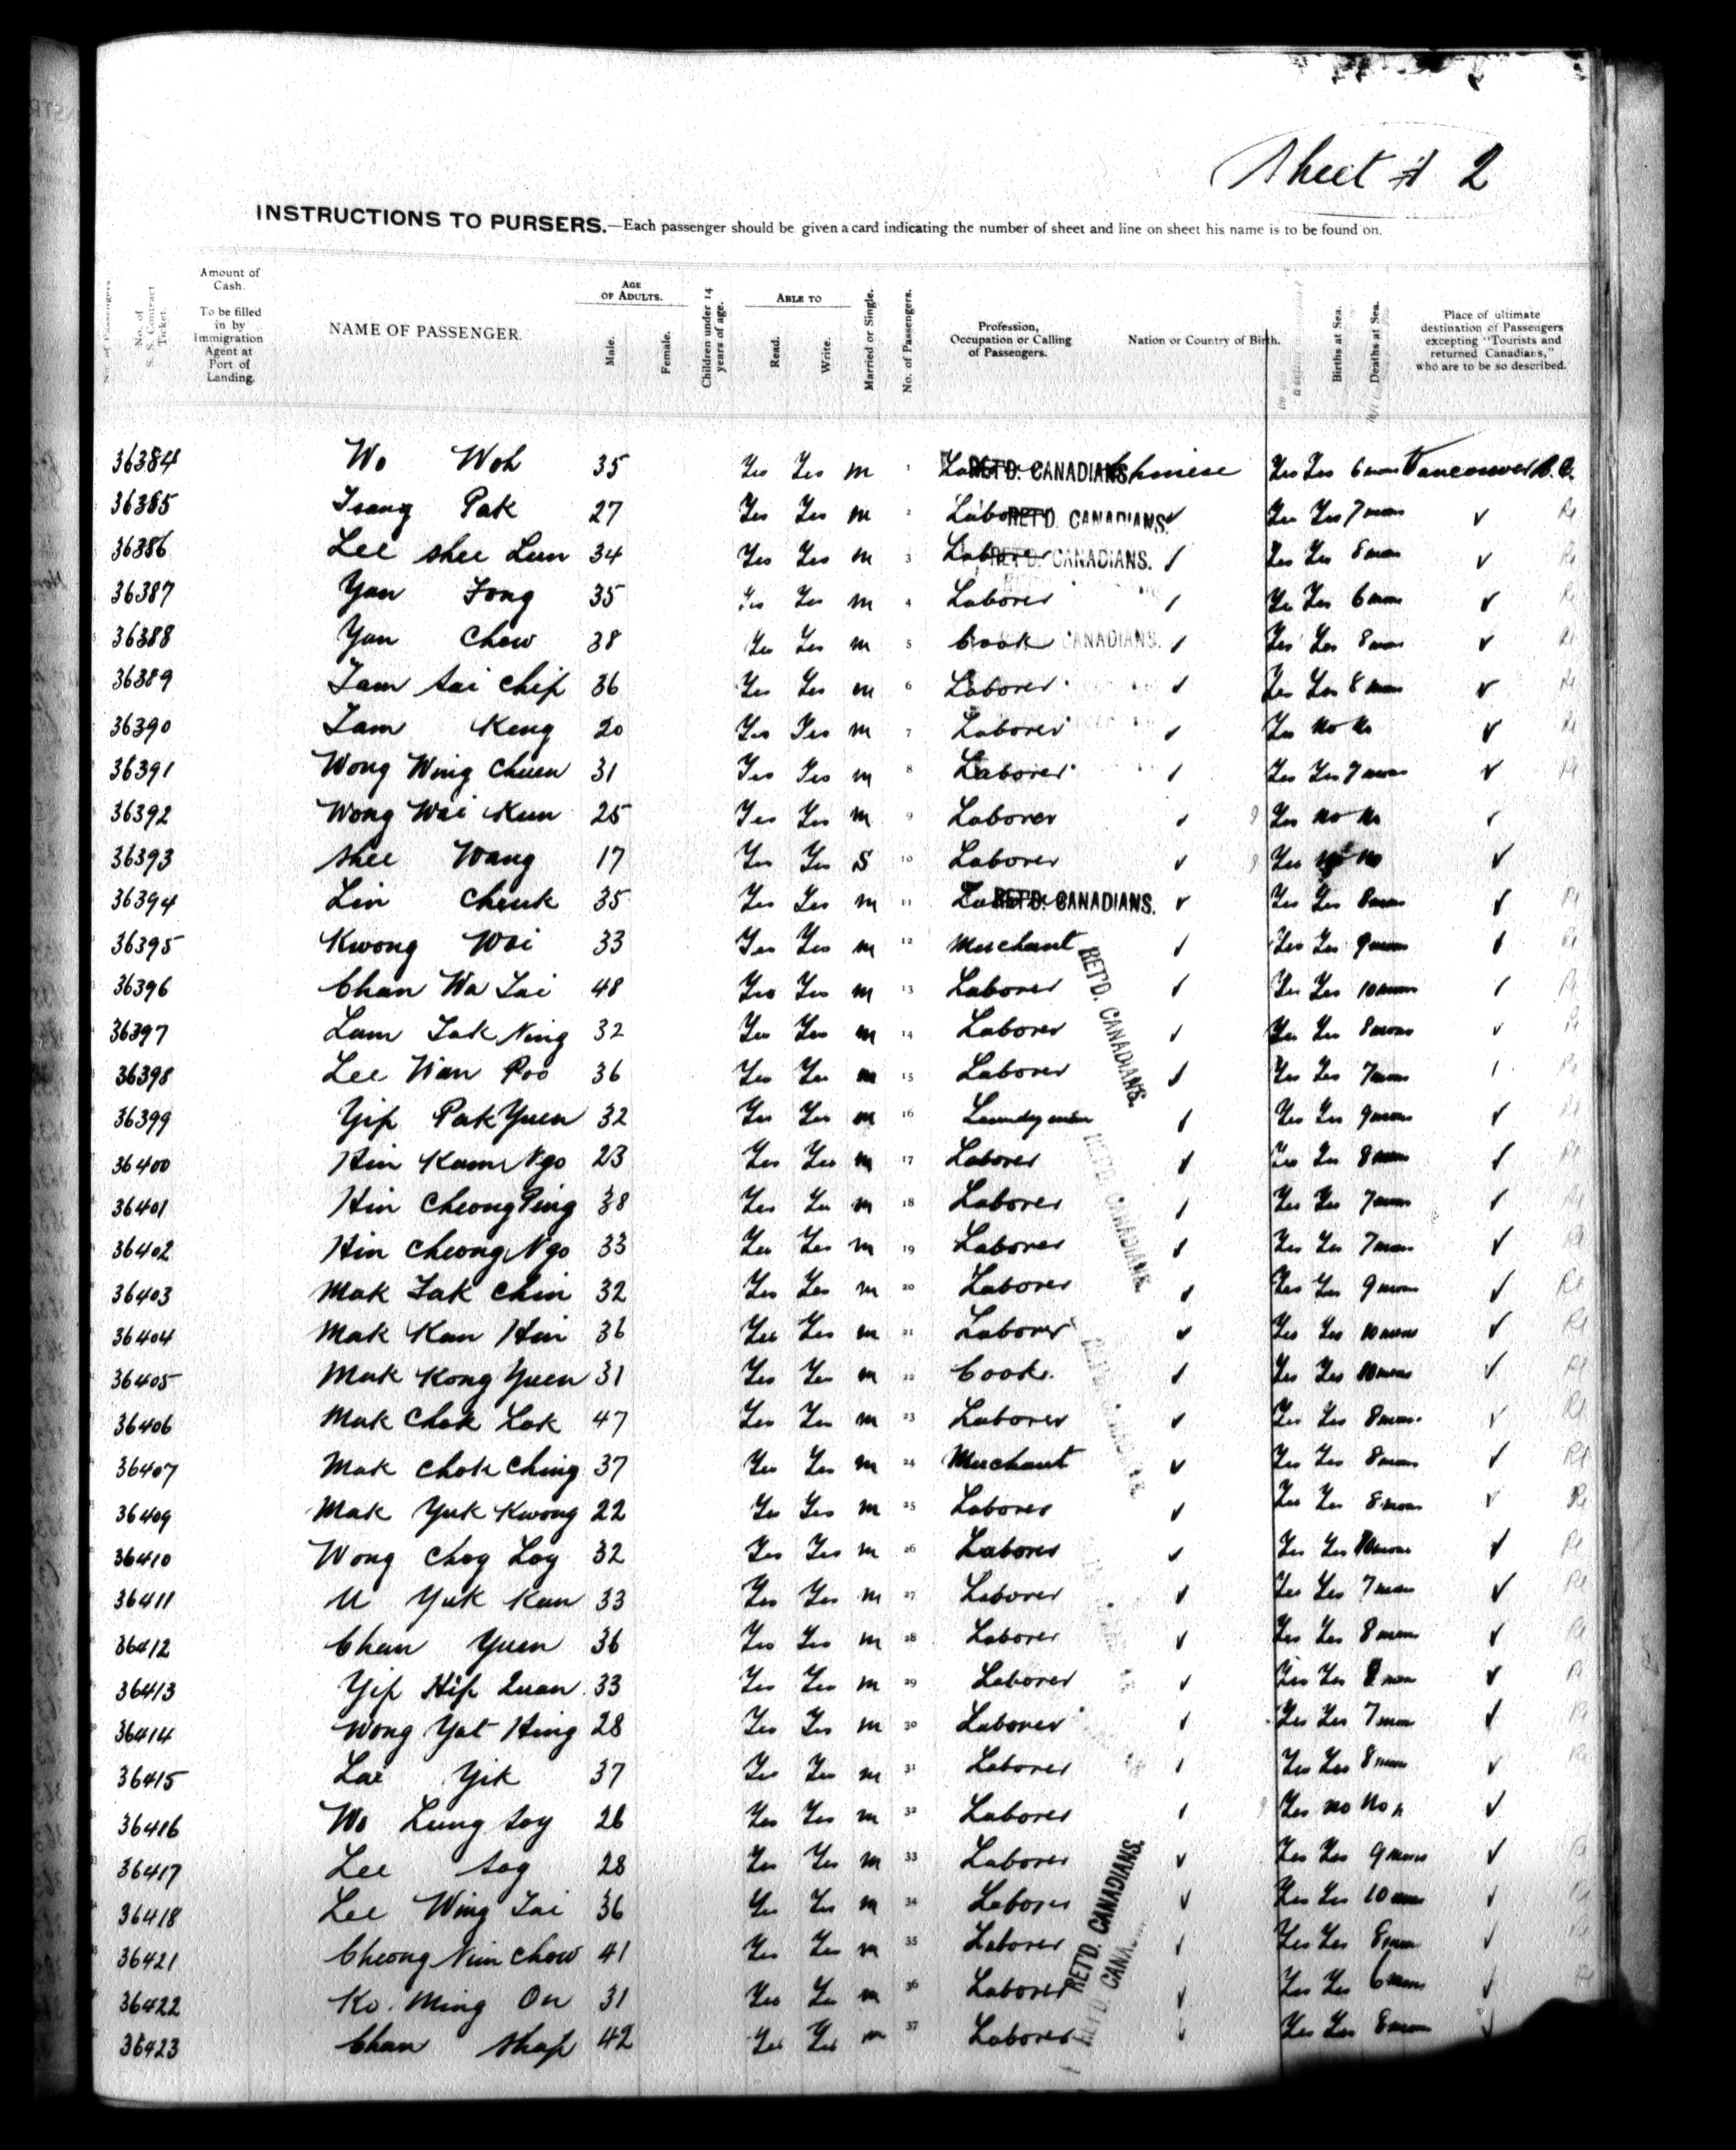 Sheet # 2
INSTRUCTIONS TO PURSERS.—Each passenger should be given a card indicating the number of sheet and line on sheet his name is to be found on.
No. of Passengers
No. of S. S. Contract Ticket.
Amount of Cash. To be filled in by Immigration Agent at Port of Landing.
NAME OF PASSENGER
AGE OF ADULTS.
Male.
Female.
Children under 14 years of age.
ABLE TO
Read.
Write.
Married or Single.
No. of Passengers.
Profession, Occupation or Calling of Passengers.
Nation or Country of Birth.
Births at Sea.
Deaths at Sea.
Place of ultimate destination of Passengers excepting "Tourists and returned Canadians," who are to be so described.
36384 Wo Woh 35 Yes Yes m 1 RET'D. CANADIANS Chinese Yes Yes 6 mos Vancouver B.C.
36385 Tsang Pak 27 Yes Yes m 2 Laborer RET'D. CANADIANS. ✓ Yes Yes 7 mos ✓
36386 Lee Shee Lun 34 Yes Yes m 3 Laborer RET'D. CANADIANS. ✓ Yes Yes 8 mos ✓
36387 Yan Fong 35 Yes Yes m 4 Laborer ✓ Yes Yes 6 mos ✓
36388 Yan Chow 38 Yes Yes m 5 Cook CANADIANS. ✓ Yes Yes 8 mos ✓
36389 Tam Sai Chip 36 Yes Yes m 6 Laborer ✓ Yes Yes 8 mos ✓
36390 Tam Keng 20 Yes Yes m 7 Laborer ✓ Yes No No ✓
36391 Wong Wing Chuen 31 Yes Yes m 8 Laborer ✓ Yes Yes 7 mos ✓
36392 Wong Wai Kun 25 Yes Yes m 9 Laborer ✓ Yes No No ✓
36393 Shee Wang 17 Yes Yes S 10 Laborer ✓ Yes No ✓
36394 Lin Cheuk 35 Yes Yes m 11 Laborer RET'D. CANADIANS. ✓ Yes Yes 8 mos ✓
36395 Kwong Wai 33 Yes Yes m 12 Merchant ✓ Yes Yes 9 mos ✓
36396 Chan Wa Tai 48 Yes Yes m 13 Laborer RET'D. CANADIANS. ✓ Yes Yes 10 mos ✓
36397 Lam Tak Ning 32 Yes Yes m 14 Laborer ✓ Yes Yes 8 mos ✓
36398 Lee Wan Poo 36 Yes Yes m 15 Laborer ✓ Yes Yes 7 mos ✓
36399 Yip Pak Yuen 32 Yes Yes m 16 Laundryman ✓ Yes Yes 9 mos ✓
36400 Hin Kam Ngo 23 Yes Yes m 17 Laborer ✓ Yes Yes 8 mos ✓
36401 Hin Cheong Ping 38 Yes Yes m 18 Laborer RET'D. CANADIANS. ✓ Yes Yes 7 mos ✓
36402 Hin Cheong Ngo 33 Yes Yes m 19 Laborer ✓ Yes Yes 7 mos ✓
36403 Mak Tak Chin 32 Yes Yes m 20 Laborer ✓ Yes Yes 9 mos ✓ Rt
36404 Mak Kan Hin 36 Yes Yes m 21 Laborer ✓ Yes Yes 10 mos ✓ Rt
36405 Mak Kong Yuen 31 Yes Yes m 22 Cook. ✓ Yes Yes 10 mos ✓ Rt
36406 Mak Chok Lok 47 Yes Yes m 23 Laborer ✓ Yes Yes 8 mos. ✓ Rt
36407 Mak Chok Ching 37 Yes Yes m 24 Merchant ✓ Yes Yes 8 mos ✓ Rt
36409 Mak Yuk Kwong 22 Yes Yes m 25 Laborer ✓ Yes Yes 8 mos ✓ Rt
36410 Wong Choy Loy 32 Yes Yes m 26 Laborer ✓ Yes Yes 10 mos ✓ Rt
36411 U Yuk Kan 33 Yes Yes m 27 Laborer ✓ Yes Yes 7 mos ✓ Rt
36412 Chan Yuen 36 Yes Yes m 28 Laborer ✓ Yes Yes 8 mos ✓
36413 Yip Hip Quan 33 Yes Yes m 29 Laborer ✓ Yes Yes 8 mos ✓
36414 Wong Yat Hing 28 Yes Yes m 30 Laborer ✓ Yes Yes 7 mos ✓
36415 Lai Yik 37 Yes Yes m 31 Laborer ✓ Yes Yes 8 mos ✓
36416 Wo Lung Soy 26 Yes Yes m 32 Laborer ✓ Yes No No ✓
36417 Lee Soy 28 Yes Yes m 33 Laborer ✓ Yes Yes 9 mos ✓
36418 Lee Wing Tai 36 Yes Yes m 34 Laborer RET'D. CANADIANS. ✓ Yes Yes 10 mos ✓
36421 Cheong Nim Chow 41 Yes Yes m 35 Laborer ✓ Yes Yes 8 mos ✓
36422 Ko. Ming On 31 Yes Yes m 36 Laborer RET'D. ✓ Yes Yes 6 mos ✓
36423 Chan Shap 42 Yes Yes m 37 Laborer ✓ Yes Yes 8 mos ✓